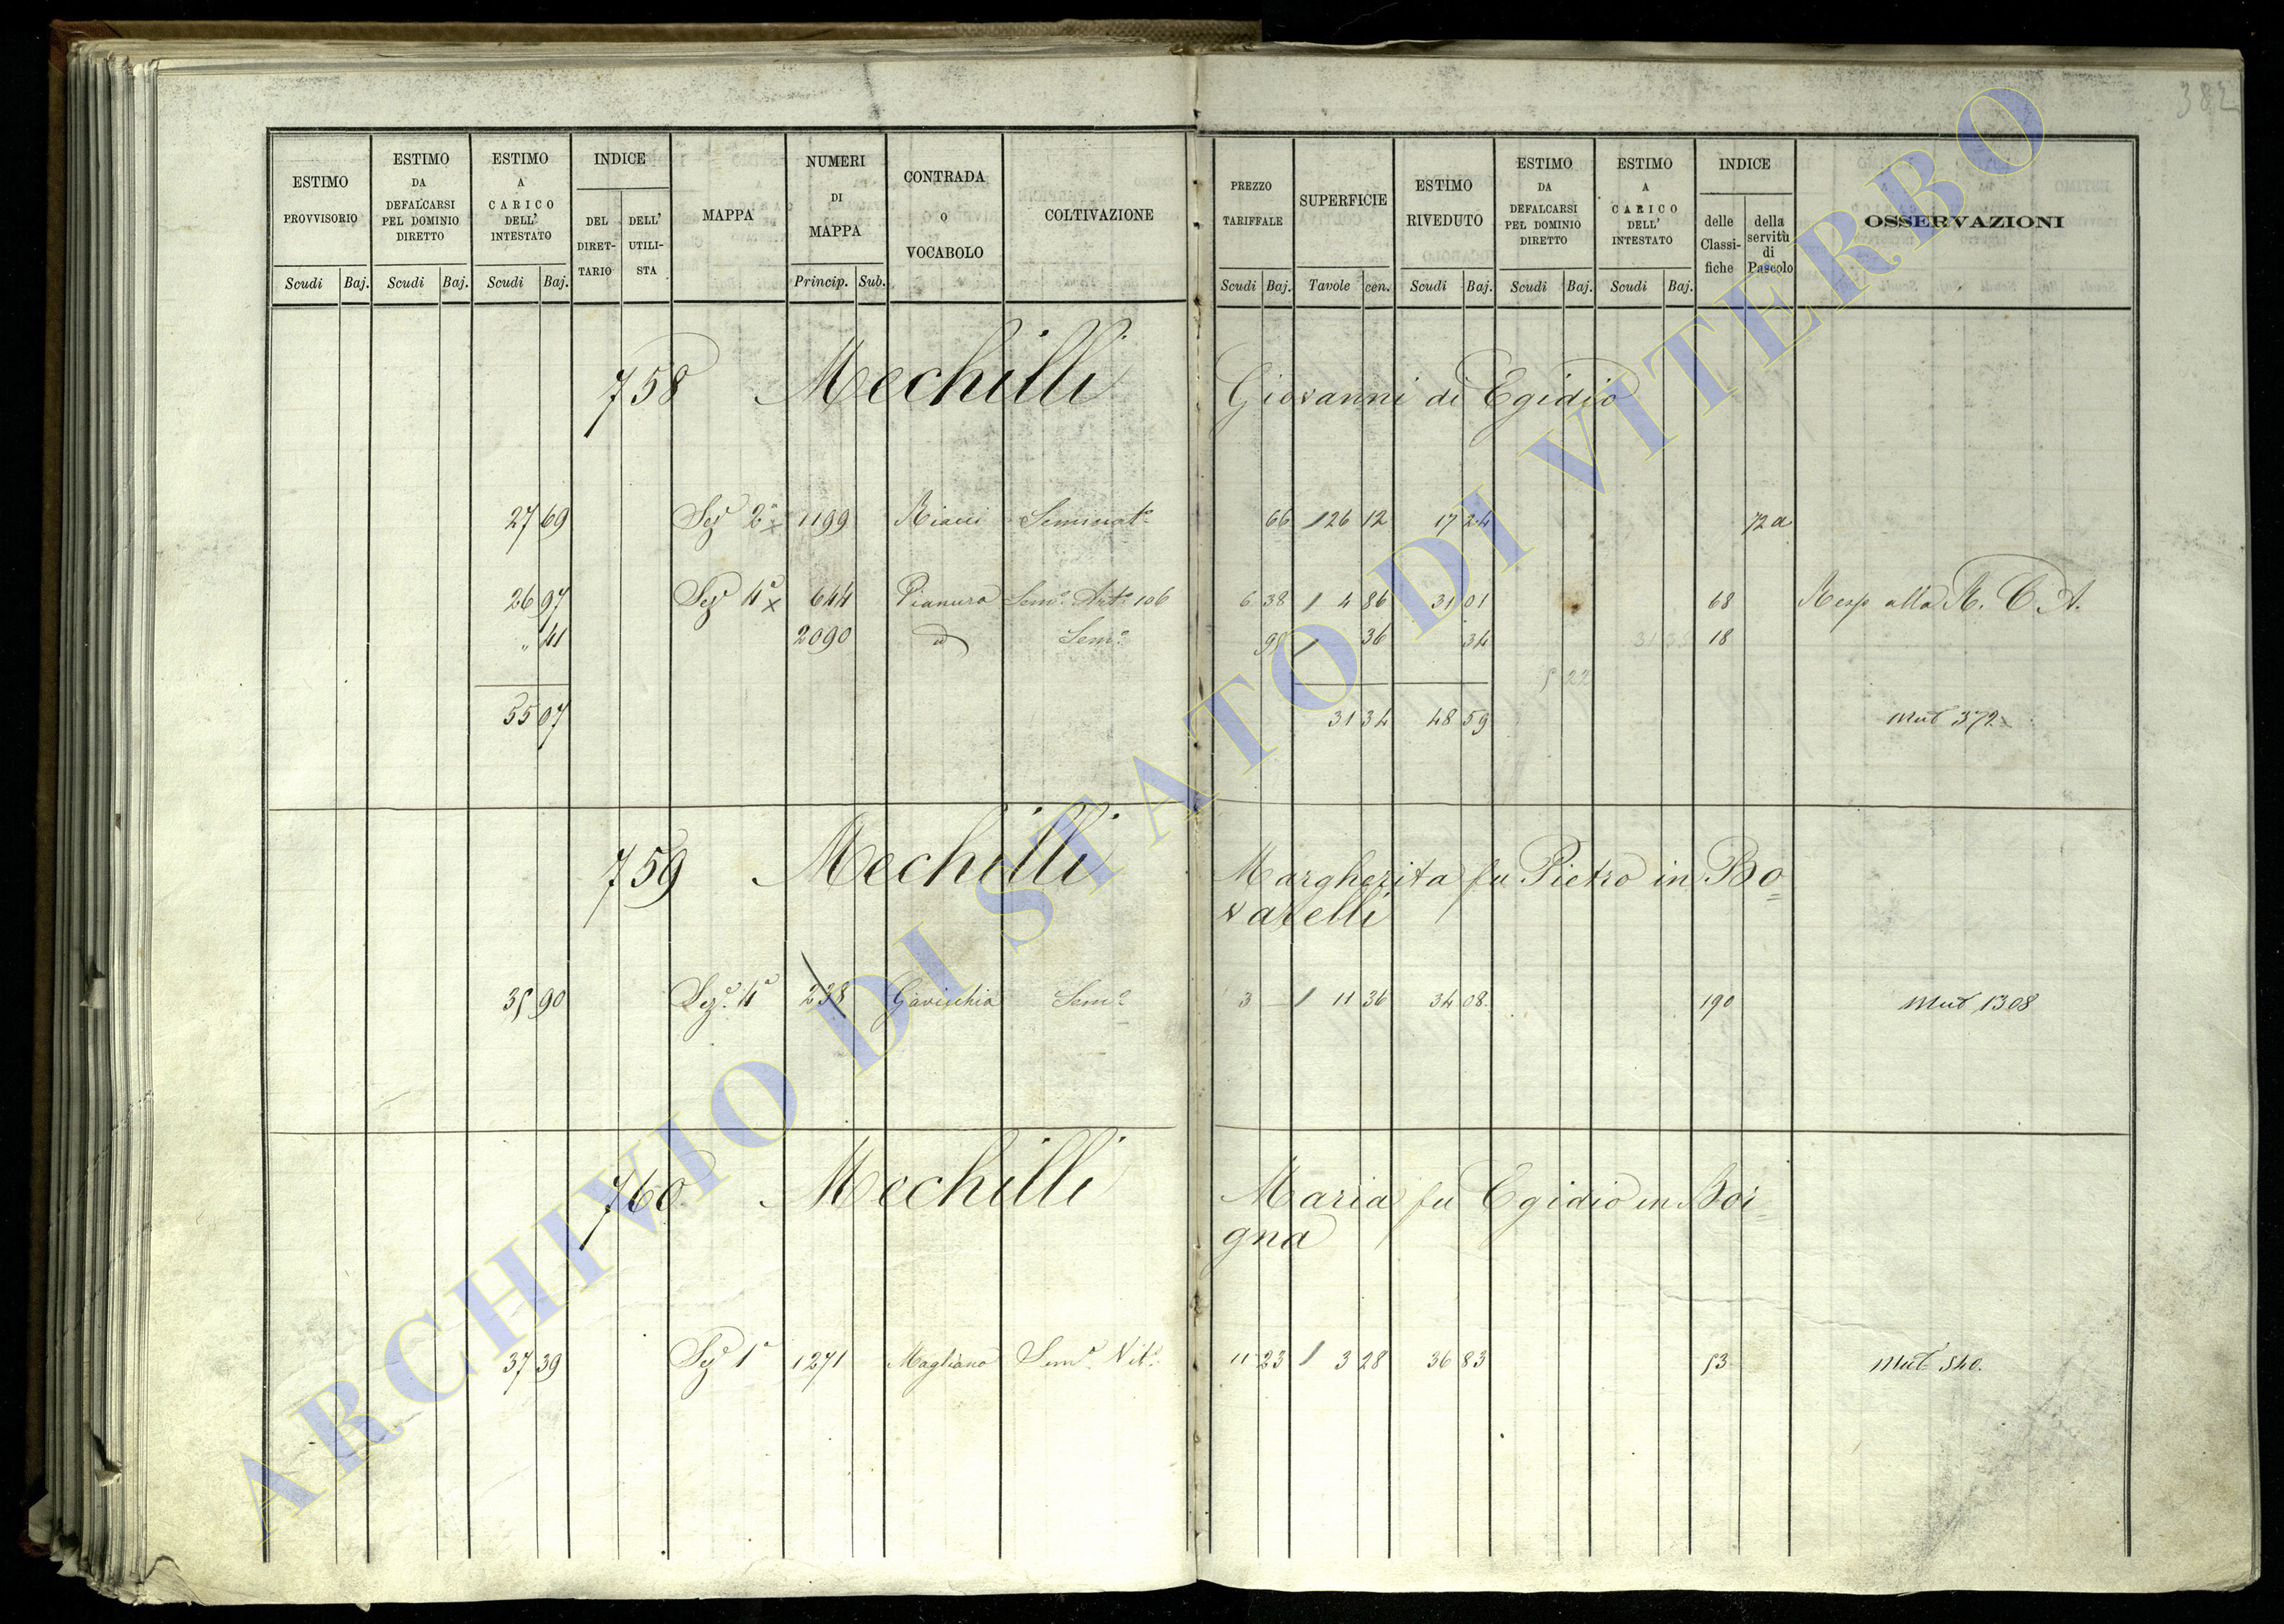 382
ESTIMO PROVVISORIO Scudi Baj.
ESTIMO DA DEFALCARSI PEL DOMINIO DIRETTO Scudi Baj.
ESTIMO A CARICO DELL' INTESTATO Scudi Baj.
INDICE DEL DIRETTARIO DELL' UTILISTA
MAPPA
NUMERI DI MAPPA Princip. Sub.
CONTRADA O VOCABOLO
COLTIVAZIONE
PREZZO TARIFFALE Scudi Baj.
SUPERFICIE Tavole cen.
ESTIMO RIVEDUTO Scudi Baj.
ESTIMO DA DEFALCARSI PEL DOMINIO DIRETTO Scudi Baj.
ESTIMO A CARICO DELL' INTESTATO Scudi Baj.
INDICE delle Classifiche della servitù di Pascolo
OSSERVAZIONI
758 Mechilli Giovanni di Egidio
27 69 Sez 2a x 1199 Seminato 66 / 26 12 17 24 72 a
26 97 Sez 4a x 644 Pianura Semo Arto 106 6 38 / 4 86 31 01 68 Resp alla R. C. A.
" 41 2090 d Semo 95 / 36 34 18
5 22
55 07 31 34 48 59 Mut 372 x
759 Mechilli Margherita fu Pietro in Bo=
varelli
35 90 Sezo 4a 238 Gavicchia Semo 3 / 11 36 34 08 190 Mut 1308
760 Mechilli Maria fu Egidio in Boi=
gna
37 39 Sez 1a 1271 Magliano Semo Vito 11 23 / 3 28 36 83 53 Mut 540.
ARCHIVIO DI STATO DI VITERBO